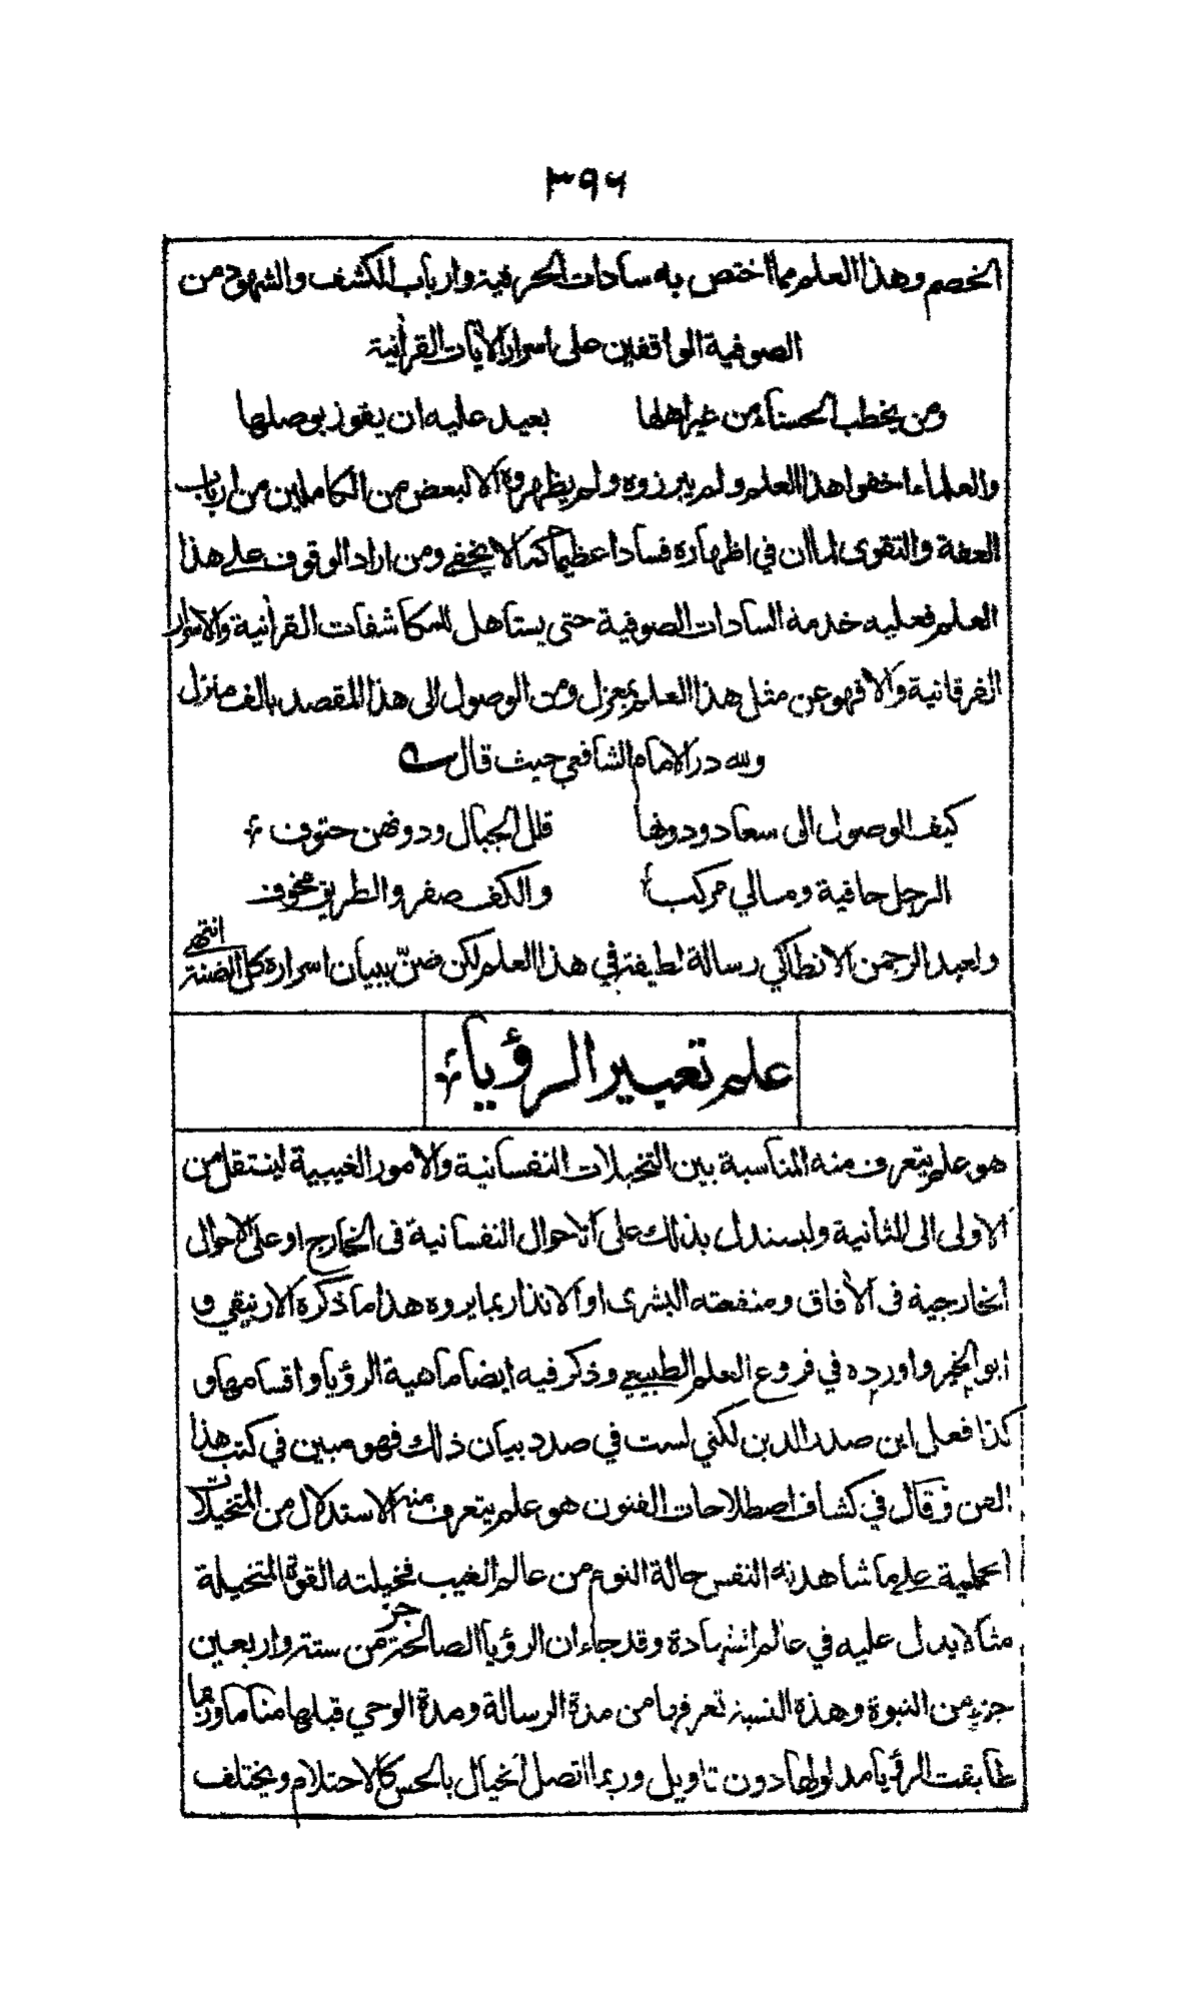 ٣٩٦
الخصم وهذا العلم مما اختص به سادات الحرفية وارباب الكشف والشهود من
الصوفية الواقفين على اسرار الآيات القرآنية
ومن يخطب الحسناء من غير اهلها بعيد عليه ان يفوز بوصلها
والعلماء اخفوا هذا العلم ولم يبرزوه ولم يظهروه الا لبعض من الكاملين من ارباب
العفة والتقوى لما ان في اظهاره فسادا عظيما كما لا يخفى ومن اراد الوقوف على هذا
العلم فعليه خدمة السادات الصوفية حتى يستاهل للمكاشفات القرآنية والاسرار
الفرقانية والا فهو عن مثل هذا العلم بمعزل ومن الوصول الى هذا المقصد بالف منزل
ولله در الامام الشافعي حيث قال
كيف الوصول الى سعاد ودونها قلل الجبال ودونهن حتوف
الرجل حافية ومالي مركب والكف صفر والطريق مخوف
ولعبد الرحمن الانطاكي رسالة لطيفة في هذا العلم لكن ضنّ ببيان اسراره كل الضنة انتهى
علم تعبير الرؤياء
هو علم يتعرف منه المناسبة بين التخيلات النفسانية والامور الغيبية لينتقل من
الاولى الى الثانية وليستدل بذلك على الاحوال النفسانية فى الخارج او على الاحوال
الخارجية فى الآفاق ومنفعته البشرى او الانذار بما يروه هذا ما ذكره الارنيقي و
ابو الخير واورده في فروع العلم الطبيعي وذكر فيه ايضا ماهية الرؤيا واقسامها و
كذا فعل ابن صدر الدين لكني لست في صدد بيان ذلك فهو مبين في كتب هذا
الفن وقال في كشاف اصطلاحات الفنون هو علم يتعرف منه الاستدلال من المتخيلات
الحلمية على ما شاهدته النفس حالة النوم من عالم الغيب فخيلته القوة المتخيلة
مثالا يدل عليه في عالم الشهادة وقد جاء ان الرؤيا الصالحة جزء من ستة واربعين
جزء من النبوة وهذه النسبة تعرفها من مدة الرسالة ومدة الوحي قبلها مناما وربما
طابقت الرؤيا مدلولها دون تاويل وربما اتصل الخيال بالحس كالاحتلام ويختلف